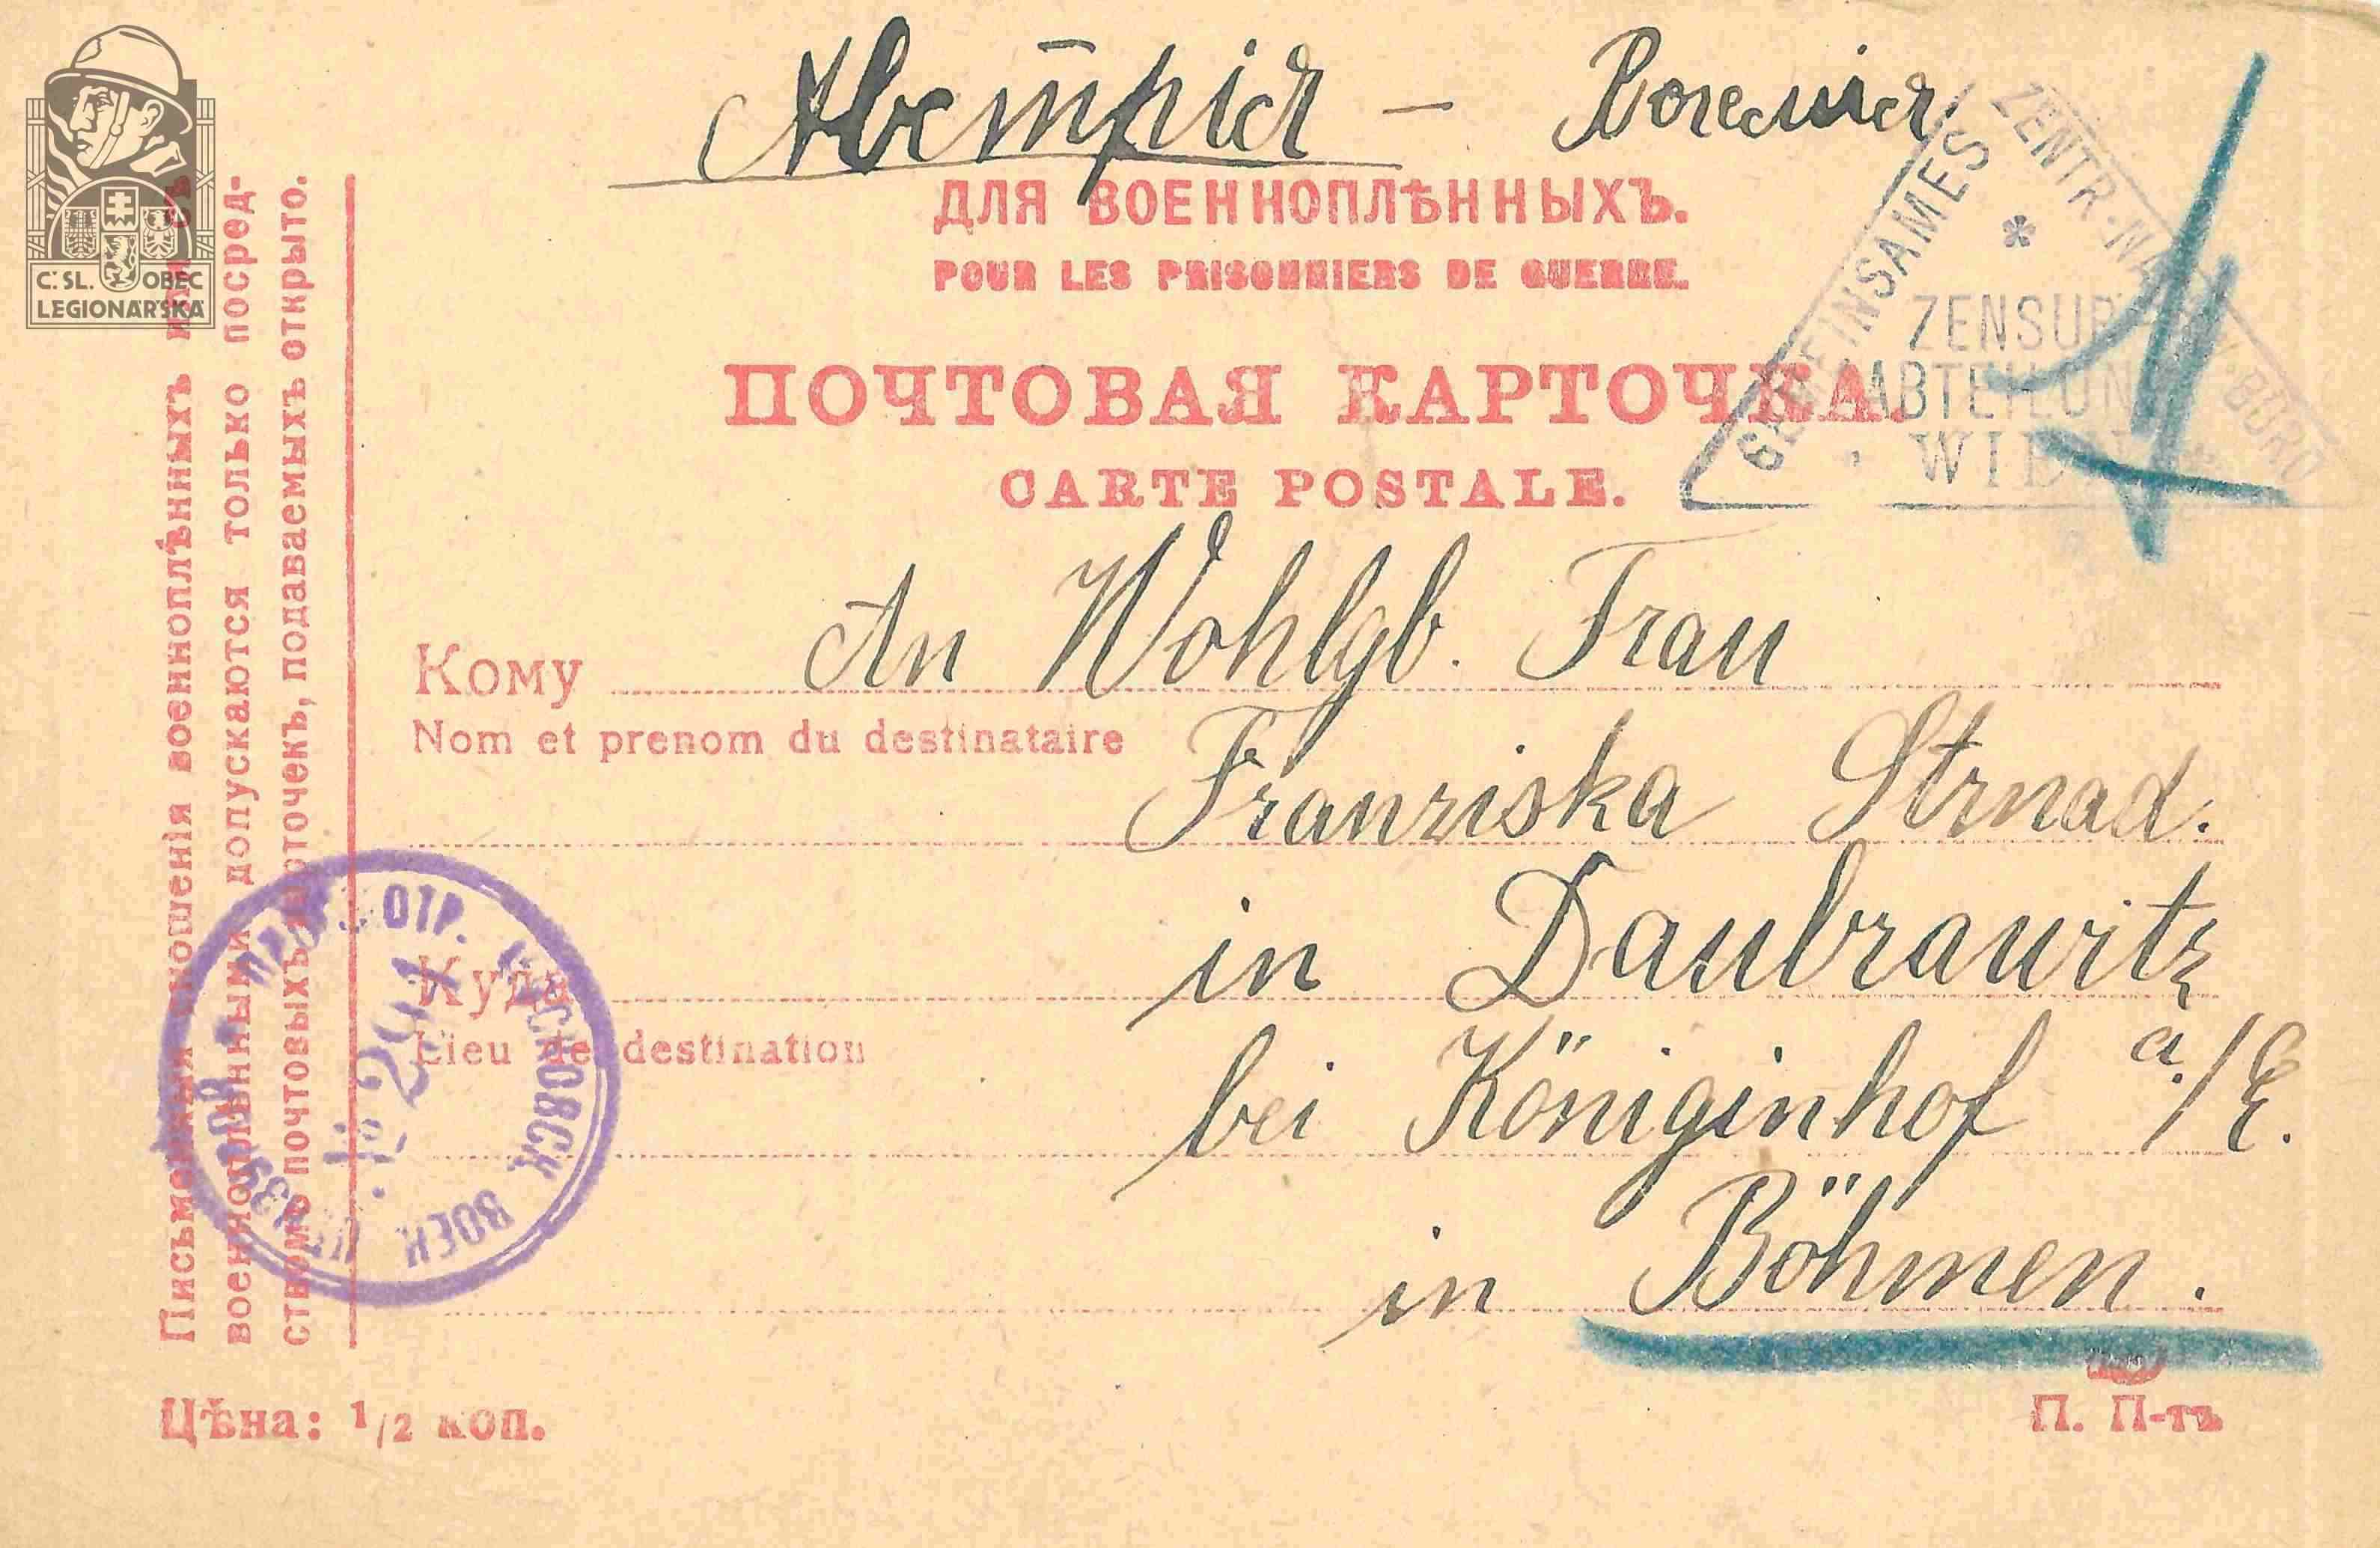 Австрія – Богемія
ДЛЯ ВОЕННОПЛѢННЫХЪ.
POUR LES PRISONNIERS DE GUERRE.
ПОЧТОВАЯ КАРТОЧКА.
CARTE POSTALE.
GEMEINSAMES ZENTR-NACHW-BÜRO
*
ZENSUR
ABTEILUNG
WIEN
Č.SL. OBEC
LEGIONÁŘSKÁ
Письменныя сношенія военноплѣнныхъ или съ
военноплѣнными допускаются только посред-
ствомъ почтовыхъ карточекъ, подаваемыхъ открыто.
Кому An Wohlgb. Frau
Nom et prenom du destinataire
Franziska Strnad.
Куда in Daubrawitz
Lieu de destination
bei Königinhof a./E.
in Böhmen.
ОТР. ВОЕН. ЦЕНЗОР
№ 291
Цѣна: 1/2 коп.
П. П-тъ